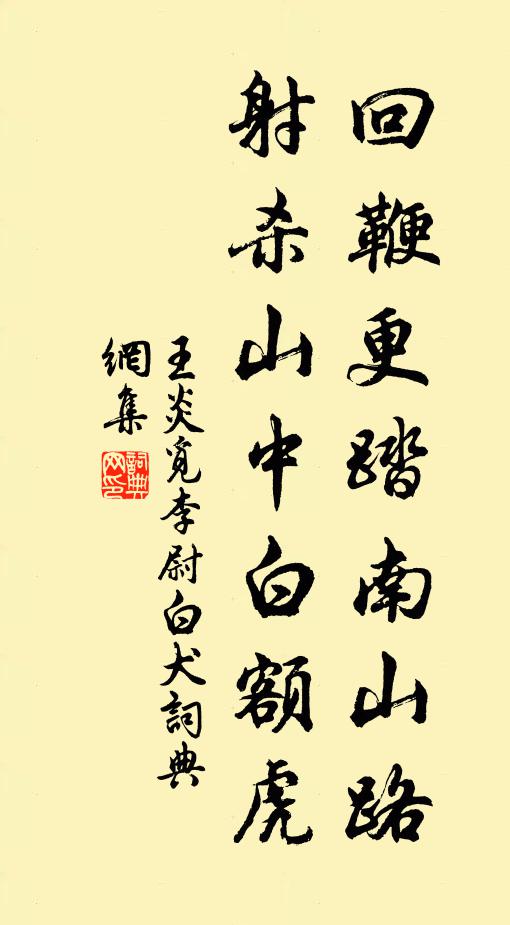 回鞭更踏南山路
射杀山中白額虎
王炎覓李尉白犬詞典
網集
詞典網印